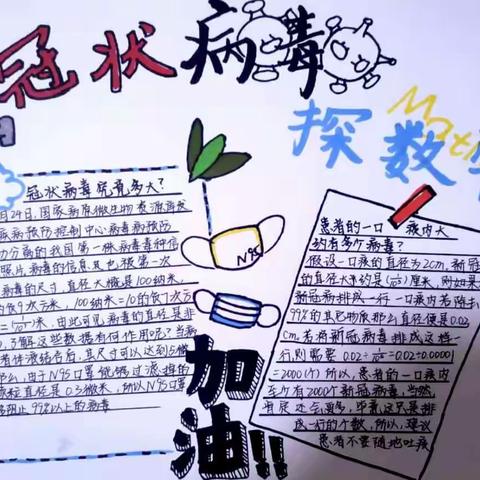 冠状病毒
探数学
Math
冠状病毒究竟多大?
月24日,国家病原微生物资源库
疾病预防控制中心病毒病预防
功分离的我国第一株病毒毒种信
照片病毒的信息其也被第一次
病毒的尺寸,直径大概是100纳米,
的负9次方米,100纳米=10的负7次方
米,由此可见病毒的直径是非
了解这些数据有何作用呢?当病
者体液结合后,其尺寸可以达到5微
那么,由于N95口罩能够过滤掉的
颗粒直径是0.3微米,所以N95口罩
够阻止99%以上的病毒
N95
加油!!
患者的一口痰内大
约有多少个病毒?
假设一口痰的直径为2cm,新冠
的直径大约是
厘米,则如果
新冠病毒排成一行一口痰内若除去
99%的其他物质那么直径便是0.02
cm.若将新冠病毒排成这样一
行,则需要0.02÷
=0.02÷0.00001
=2000(个)所以,患者的一口痰内
至少有2000个新冠病毒,当然,
肯定还会更多,毕竟,这只是排
成一行的个数,所以,建议
患者不要随地吐痰